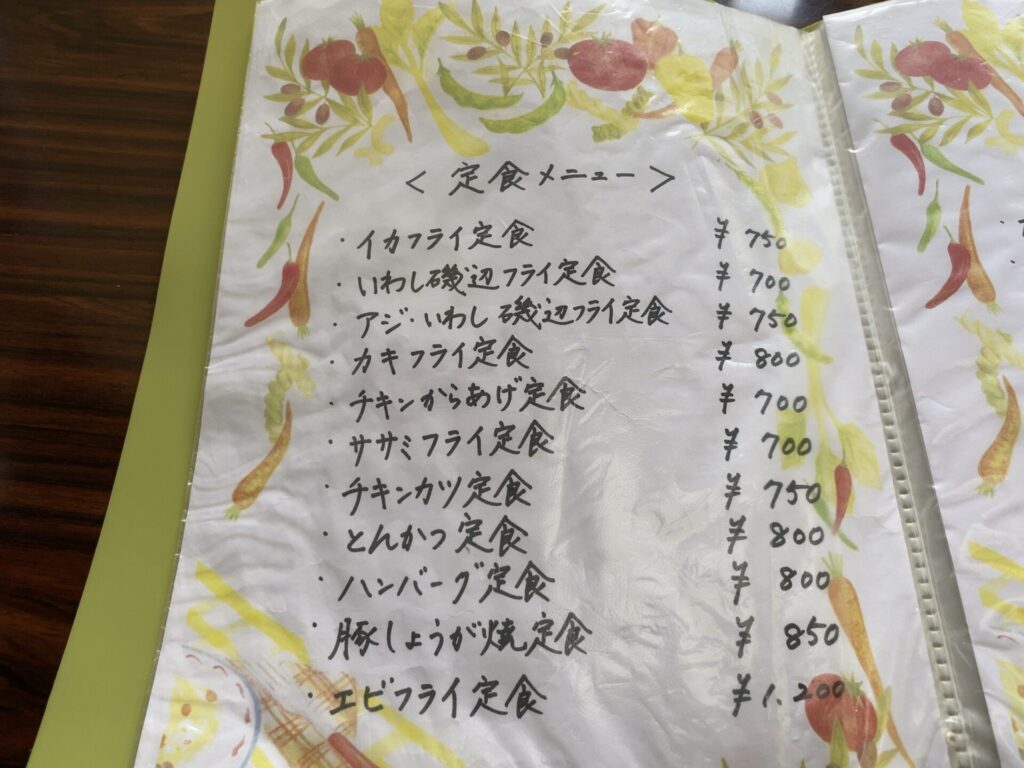 < 定食メニュー >
・イカフライ定食 ¥ 750
・いわし磯辺フライ定食 ¥ 700
・アジ・いわし磯辺フライ定食 ¥ 750
・カキフライ定食 ¥ 800
・チキンからあげ定食 ¥ 700
・ササミフライ定食 ¥ 700
・チキンカツ定食 ¥ 750
・とんかつ定食 ¥ 800
・ハンバーグ定食 ¥ 800
・豚しょうが焼定食 ¥ 850
・エビフライ定食 ¥ 1.200